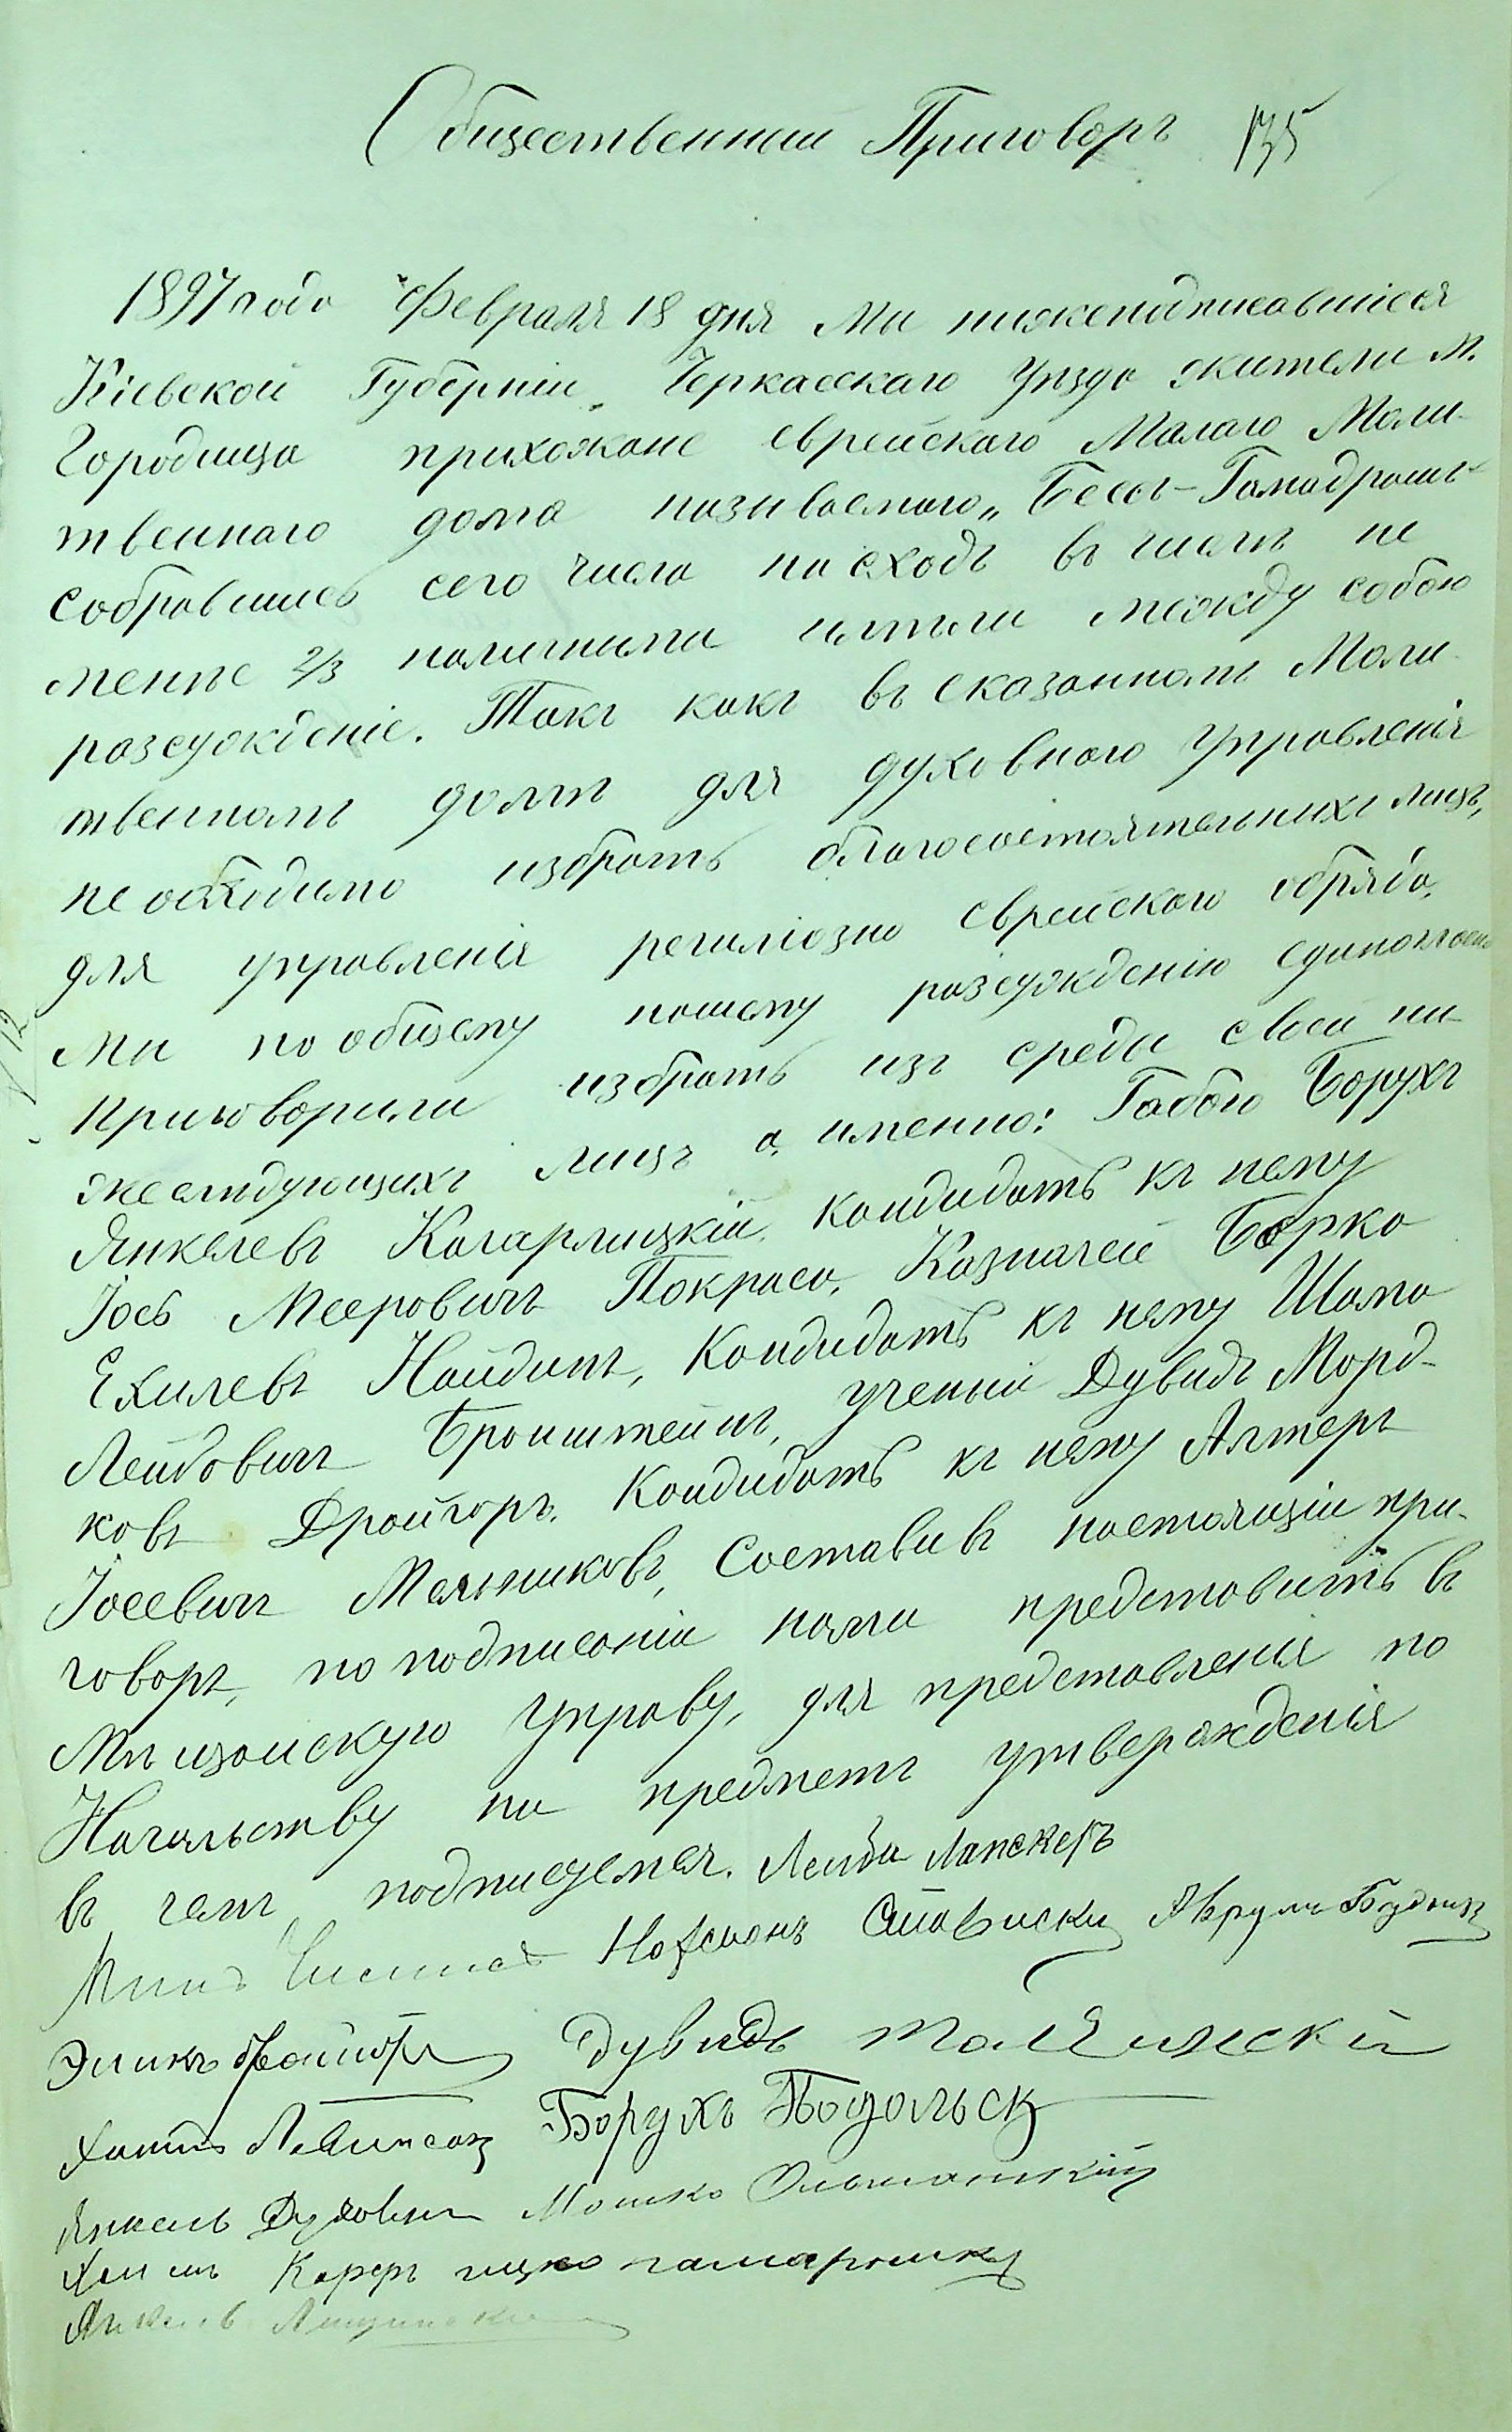 Общественний Приговоръ 135
1897 года Февраля 18 дня Ми нижеподписавшіеся
Кіевской Губерніи, Черкасскаго Уѣзда жители м.
Городища прихожане еврейскаго Малаго Моли-
твеннаго дома називаемаго „Бесъ-Гамадрашъ"
собравшись сего числа на сходъ въ числѣ не
менѣе 2/3 наличними имѣли между собою
разсужденіе. Такъ какъ въ сказанномъ Моли-
твенномъ домѣ для духовнаго Управленія
необходимо избрать благосостоятельнихъ лицъ,
для управленія региліозно еврейскаго обряда,
ми по общему нашему разсужденію единогласно
приговорили избрать изъ среды своей ни-
жеслѣдующихъ лицъ а именно: Габою Борухъ
Янкелевъ Кагарлицкій, кандидатъ къ нему
Іось Мееровичъ Покраса, Казначей Берко
Ехилевъ Найдитъ, Кандидатъ къ нему Шама
Лейбовичъ Бронштейнъ, ученый Дувидъ Морд-
ковъ Драйгоръ. Кандидатъ къ нему Алтеръ
Іосевичъ Мельниковъ, Составивъ настоящій при-
говоръ, по подписаніи нами представить въ
Мѣщанскую Управу, для представленія по
Начальству на предметъ утвержденія
въ чемъ подписуемся. Лейба Лапскеръ
Нахманъ Стависки Аврумъ Будницк
Дувидъ
Хаимъ Левинсонъ Борухъ Подольск
Янкель Духовни Мошко Ольшанскій
Хаимъ Карфъ ицко гамарник
Янкель